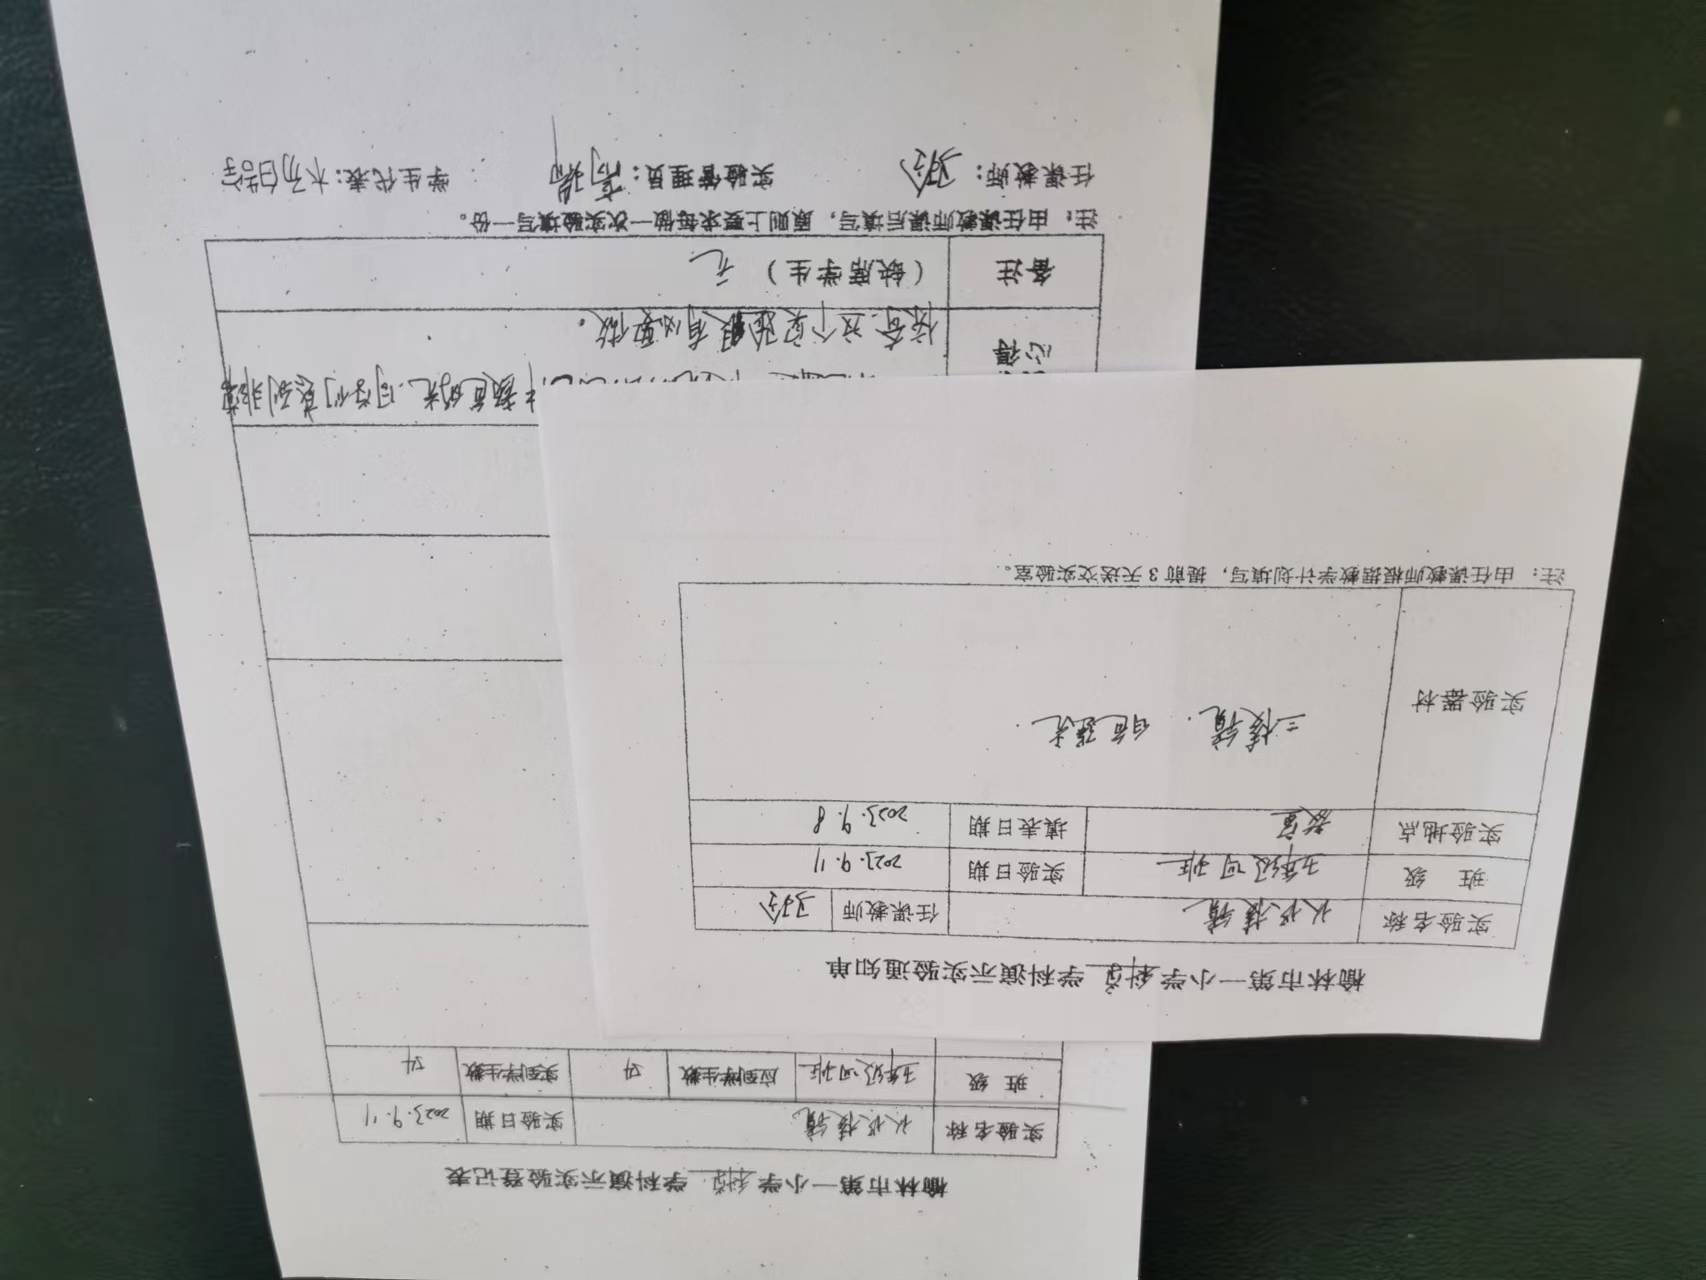 榆林市第一小学科学学科演示实验通知单
实验名称 认识棱镜 任课教师
班 级 五年级四班 实验日期 2023.9.11
实验地点 教室 填表日期 2023.9.8
实验器材 三棱镜. 白色强光.
注：由任课教师根据教学计划填写，提前3天送交实验室。
榆林市第一小学科学学科演示实验登记表
实验名称 认识棱镜 实验日期 2023.9.11
班 级 五年级四班 应到学生数 54 实到学生数 54
颜色的光.同学们感到非常
心得 惊奇.这个实验很有必要做。
备注 （缺席学生） 无
注：由任课教师课后填写，原则上要求每做一次实验填写一份。
任课教师： 实验管理员： 学生代表：